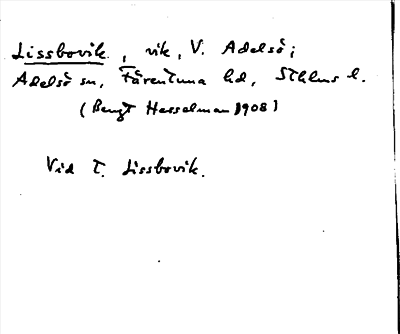 Lissbovik, vik, V. Adelsö;
Adelsö sn, Färentuna hd, Sthlms l.
(Bengt Hesselman 1908)
Vid T. Lissbovik.